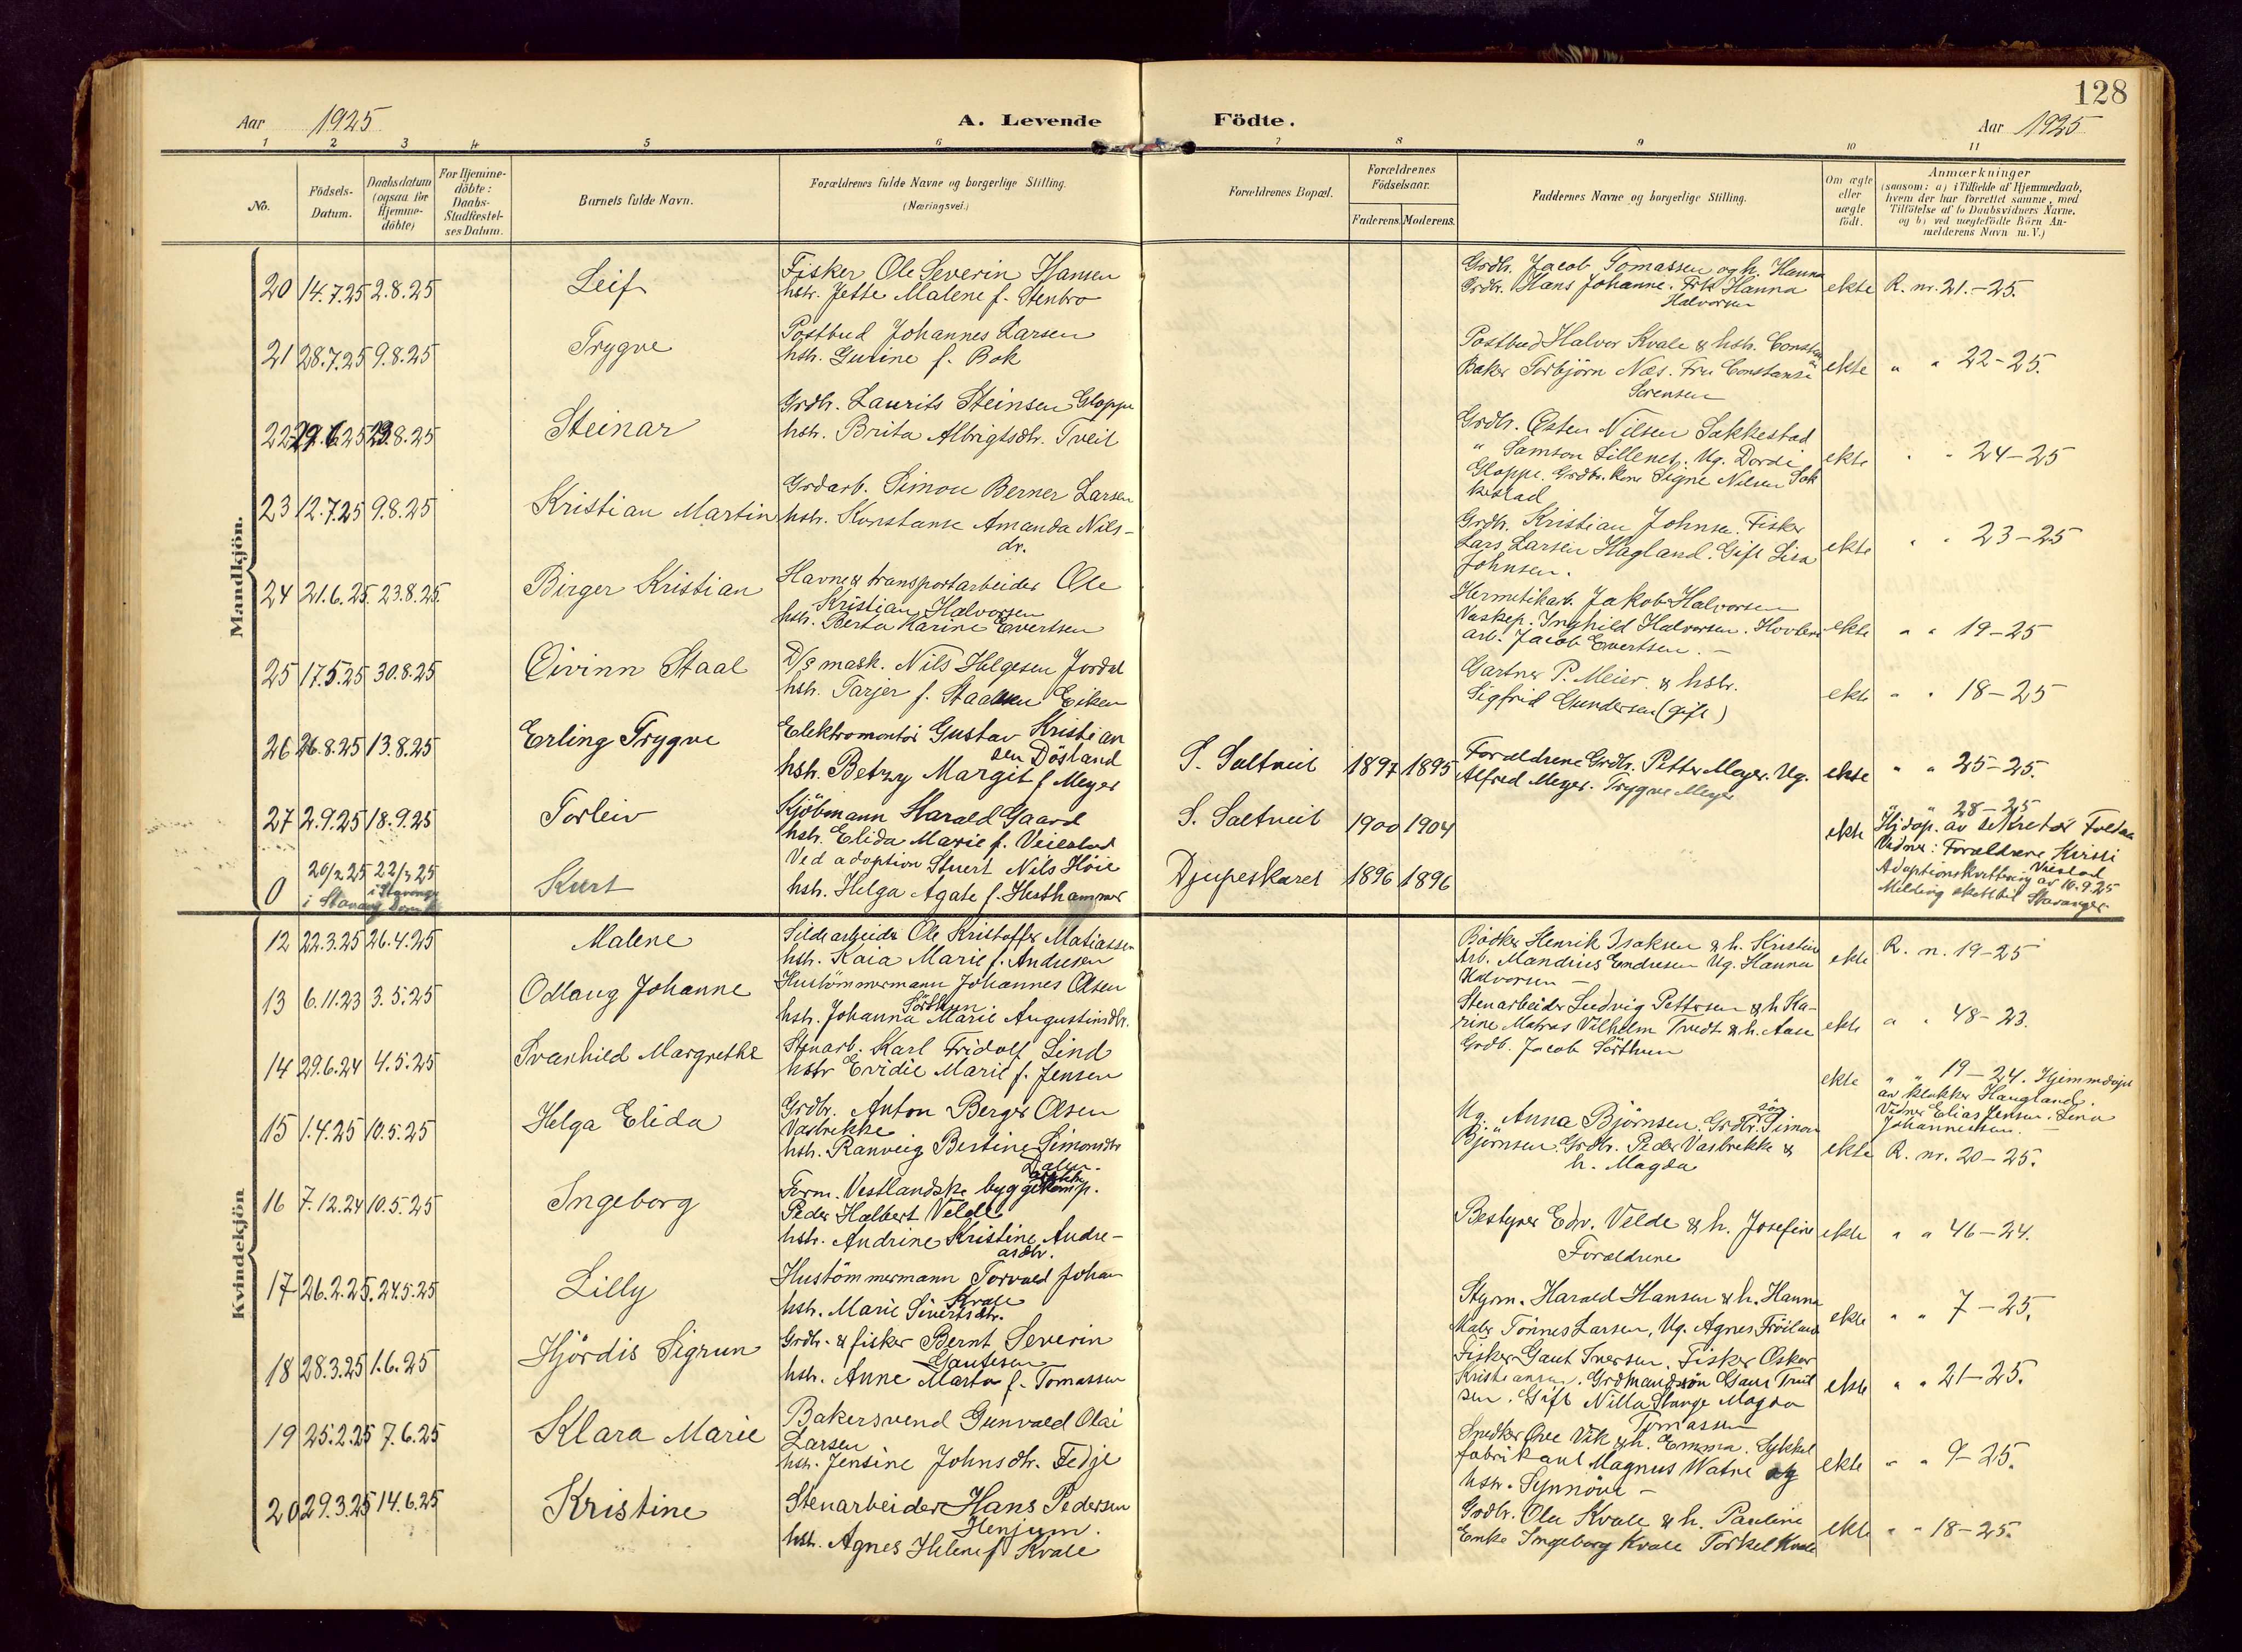 128
Aar 1925
A. Levende Födte.
Aar 1925
1 2 3 4 5 6 7 8 9 10 11
No.
Födsels-
Datum.
Daabsdatum
(ogsaa for
Hjemme-
döbte)
For Hjemme-
döbte:
Daabs-
Stadfæstel-
ses Datum.
Barnets fulde Navn.
Forældrenes fulde Navne og borgerlige Stilling.
(Næringsvei.)
Forældrenes Bopæl.
Forældrenes
Födselsaar.
Faderens. Moderens.
Faddernes Navne og borgerlige Stilling.
Om ægte
eller
uægte
födt.
Anmærkninger
(saasom: a) i Tilfælde af Hjemmedaab,
hvem der har forrettet samme, med
Tilföielse af to Daabsvidners Navne,
og b) ved uægtefödte Börn An-
melderens Navn m. V.)
Mandkjön.
20 14.7.25 2.8.25 Leif
Fisker Ole Severin Hansen
hstr. Jette Malene f. Stenbro
Grdbr. Jacob Tomassen og h. Hanna
Grdbr. Hans Johanne. Frk Hanna
Halvorsen
ekte R. nr. 21.-25.
21 28.7.25 9.8.25 Trygve
Postbud Johannes Larsen
hstr. Gurine f. Bok
Postbud Halvor Kvale & hstr.
Baker Torbjörn Næs. Fru Constanse
Sörensen
ekte " " 22-25.
22 8.25 Steinar
Grdbr. Laurits Steinsen Gloppe
hstr. Brita Albrigtsdtr. Tveit
Grdbr. Östen Nilsen Sakkestad
" Samson Lillenes. Ug. Dordi
Gloppe. Grdbr. kone Signe Nilsen Sak
kestad
ekte " " 24-25
23 12.7.25 9.8.25 Kristian Martin
Grdarb. Simon Berner Larsen
hstr. Konstanse Amanda Nils-
dr.
Grdbr. Kristian Johnsen. Fisker
Lars Larsen Hagland. Gift Lisa
Johnsen.
ekte " " 23-25
24 21.6.25. 23.8.25. Birger Kristian
Havne & transportarbeider Ole
Kristian Halvorsen
hstr. Berta Karine Evertsen
Hermetikarb. Jakob Halvorsen
Vaskep. Inghild Halvorsen.
arb. Jacob Evertsen. -
ekte " " 19-25
25 17.5.25 30.8.25 Eivinn Staal
D/s mask. Nils Helgesen Jordal
hstr. Tarjer f. Eiken
Gartner P. Meier & hstr.
Sigfrid Gundersen (gift)
ekte " " 18-25
26 26.8.25 13.8.25 Erling Trygve
Elektromontör Gustav Kristian
sen Dösland
hstr. Betzy Margit f. Meyer
S. Saltveit 1897 1895
Forældrene Grdbr. Petter Meyer. Ug.
Alfred Meyer. Trygve Meyer
ekte " " 25-25.
27 2.9.25 18.9.25 Torleiv
Kjöbmann Harald Gaard
hstr. Elida Marie f. Veiestad
S. Saltveit 1900 1904
ekte " " 28-25
Hjdöp. av sekretær
Vidner: Forældrene Kirsti
0 20/2 25 22/3 25 Kurt
i Stavanger
Ved adoption Stuert Nils Höie
hstr. Helga Agate f. Husthammer
Djupeskaret 1896 1896
Adoptionskvittering av 16.9.25
Stavanger
Kvindekjön
12 22.3.25 26.4.25 Malene
Sildearbeider Ole Kristoffer Matiassen
hstr. Kaia Marie f. Andresen
Bödker Henrik Isaksen & h. Kristine
Arb. Mandius Endresen Ug. Hanna
Halvorsen -
ekte R. n. 19-25
13 6.11.23 3.5.25 Odlaug Johanne
Hustömmermann Johannes Olsen
Sörthun.
hstr. Johanna Marie Augustinsdtr.
Stenarbeider Ludvig Pettersen & h Ka-
rine Matros Vilhelm Tvedt & h. Aase
Grdb. Jacob Sörthun
ekte " " 48-23.
14 29.6.24 4.5.25 Svanhild Margrethe
Stenarb. Karl Fridolf Lind
hstr Evidie Marie f. Jensen
ekte " " 19-24. Hjemmedöpt
av klokker Haugland.
Vidner Elias Jensen. Lina
Johannessen. -
15 1.4.25 10.5.25 Helga Elida
Grdbr. Anton Berger Olsen
Vasbrekke
hstr. Ranveig Bertine Simonsdtr
Dalen.
Ug. Anna Björnsen. Grdbr. sön Simon
Björnsen Grdbr. Peder Vasbrekke &
h. Magda
ekte R. nr. 20-25.
16 7.12.24 10.5.25 Ingeborg
Form. Vestlandske byggekomp.
Peder Halbert Velde
hstr. Andrine Kristine Andre-
asdtr.
Bestyrer Edv. Velde & h. Josefine
Forældrene
ekte " " 46-24.
17 26.2.25. 24.5.25 Lilly
Hustömmermann Torvald Johan
Kvale
hstr. Marie Sivertsdtr.
Styrm. Harald Hansen & h. Hanna
Maler Tönnes Larsen, Ug. Agnes Fröiland
ekte " " 7-25.
18 28.3.25 1.6.25 Hjördis Sigrun
Grdbr. & fisker Bernt Severin
Gautesen
hstr. Anne Marta f. Tomassen
Fisker Gaut Iversen. Fisker Oskar
Kristiansen. Grdmandsön Gaut
sen. Gift Nilla Stange Magda
Tomassen
ekte " " 21-25.
19 25.2.25 7.6.25 Klara Marie
Bakersvend Gunvald Olai
Larsen
hstr. Jensine Johnsdtr. Fedje
Snedker Ove Vik & h. Emma. Sykkel
fabrikant Magnus Watne og
hstr. Synnöve -
ekte " " 9-25.
20 29.3.25 14.6.25 Kristine
Stenarbeider Hans Pedersen
Henjum.
hstr. Agnes Helene f Kvale
Grdbr. Ole Kvale & h. Pauline
Enke Ingeborg Kvale Torkel Kvale
ekte " " 18-25.